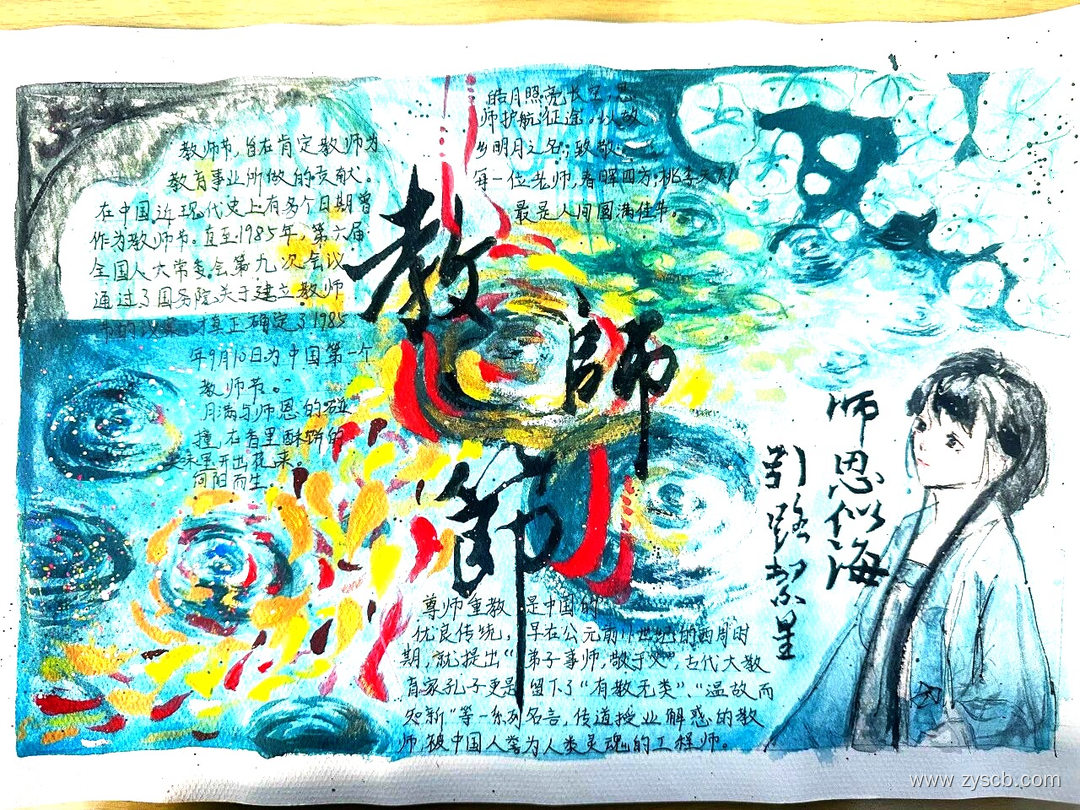 教师节,旨在肯定教师为
教育事业所做的贡献。
在中国近现代史上有多个日期曾
作为教师节。直至1985年,第六届
全国人大常委会第九次会议
通过了国务院关于建立教师
节的议案,才真正确定了1985
年9月10日为中国第一个
教师节。
月满与师恩的碰
撞,在香里酥脆的
里开出花来,
向阳而生。
皓月照亮长空,恩
师护航征途,以故
乡明月之名;致敬
每一位老师,春晖四方;桃李天
最是人间圆满佳年。
教師節
师恩似海
引路如星
尊师重教 是中国的
优良传统,早在公元前11世纪的西周时
期,就提出“弟子事师,敬于父”,古代大教
育家孔子更是留下了“有教无类”、“温故而
知新”等一系列名言,传道授业解惑的教
师,被中国人誉为人类灵魂的工程师。
www.zyscb.com